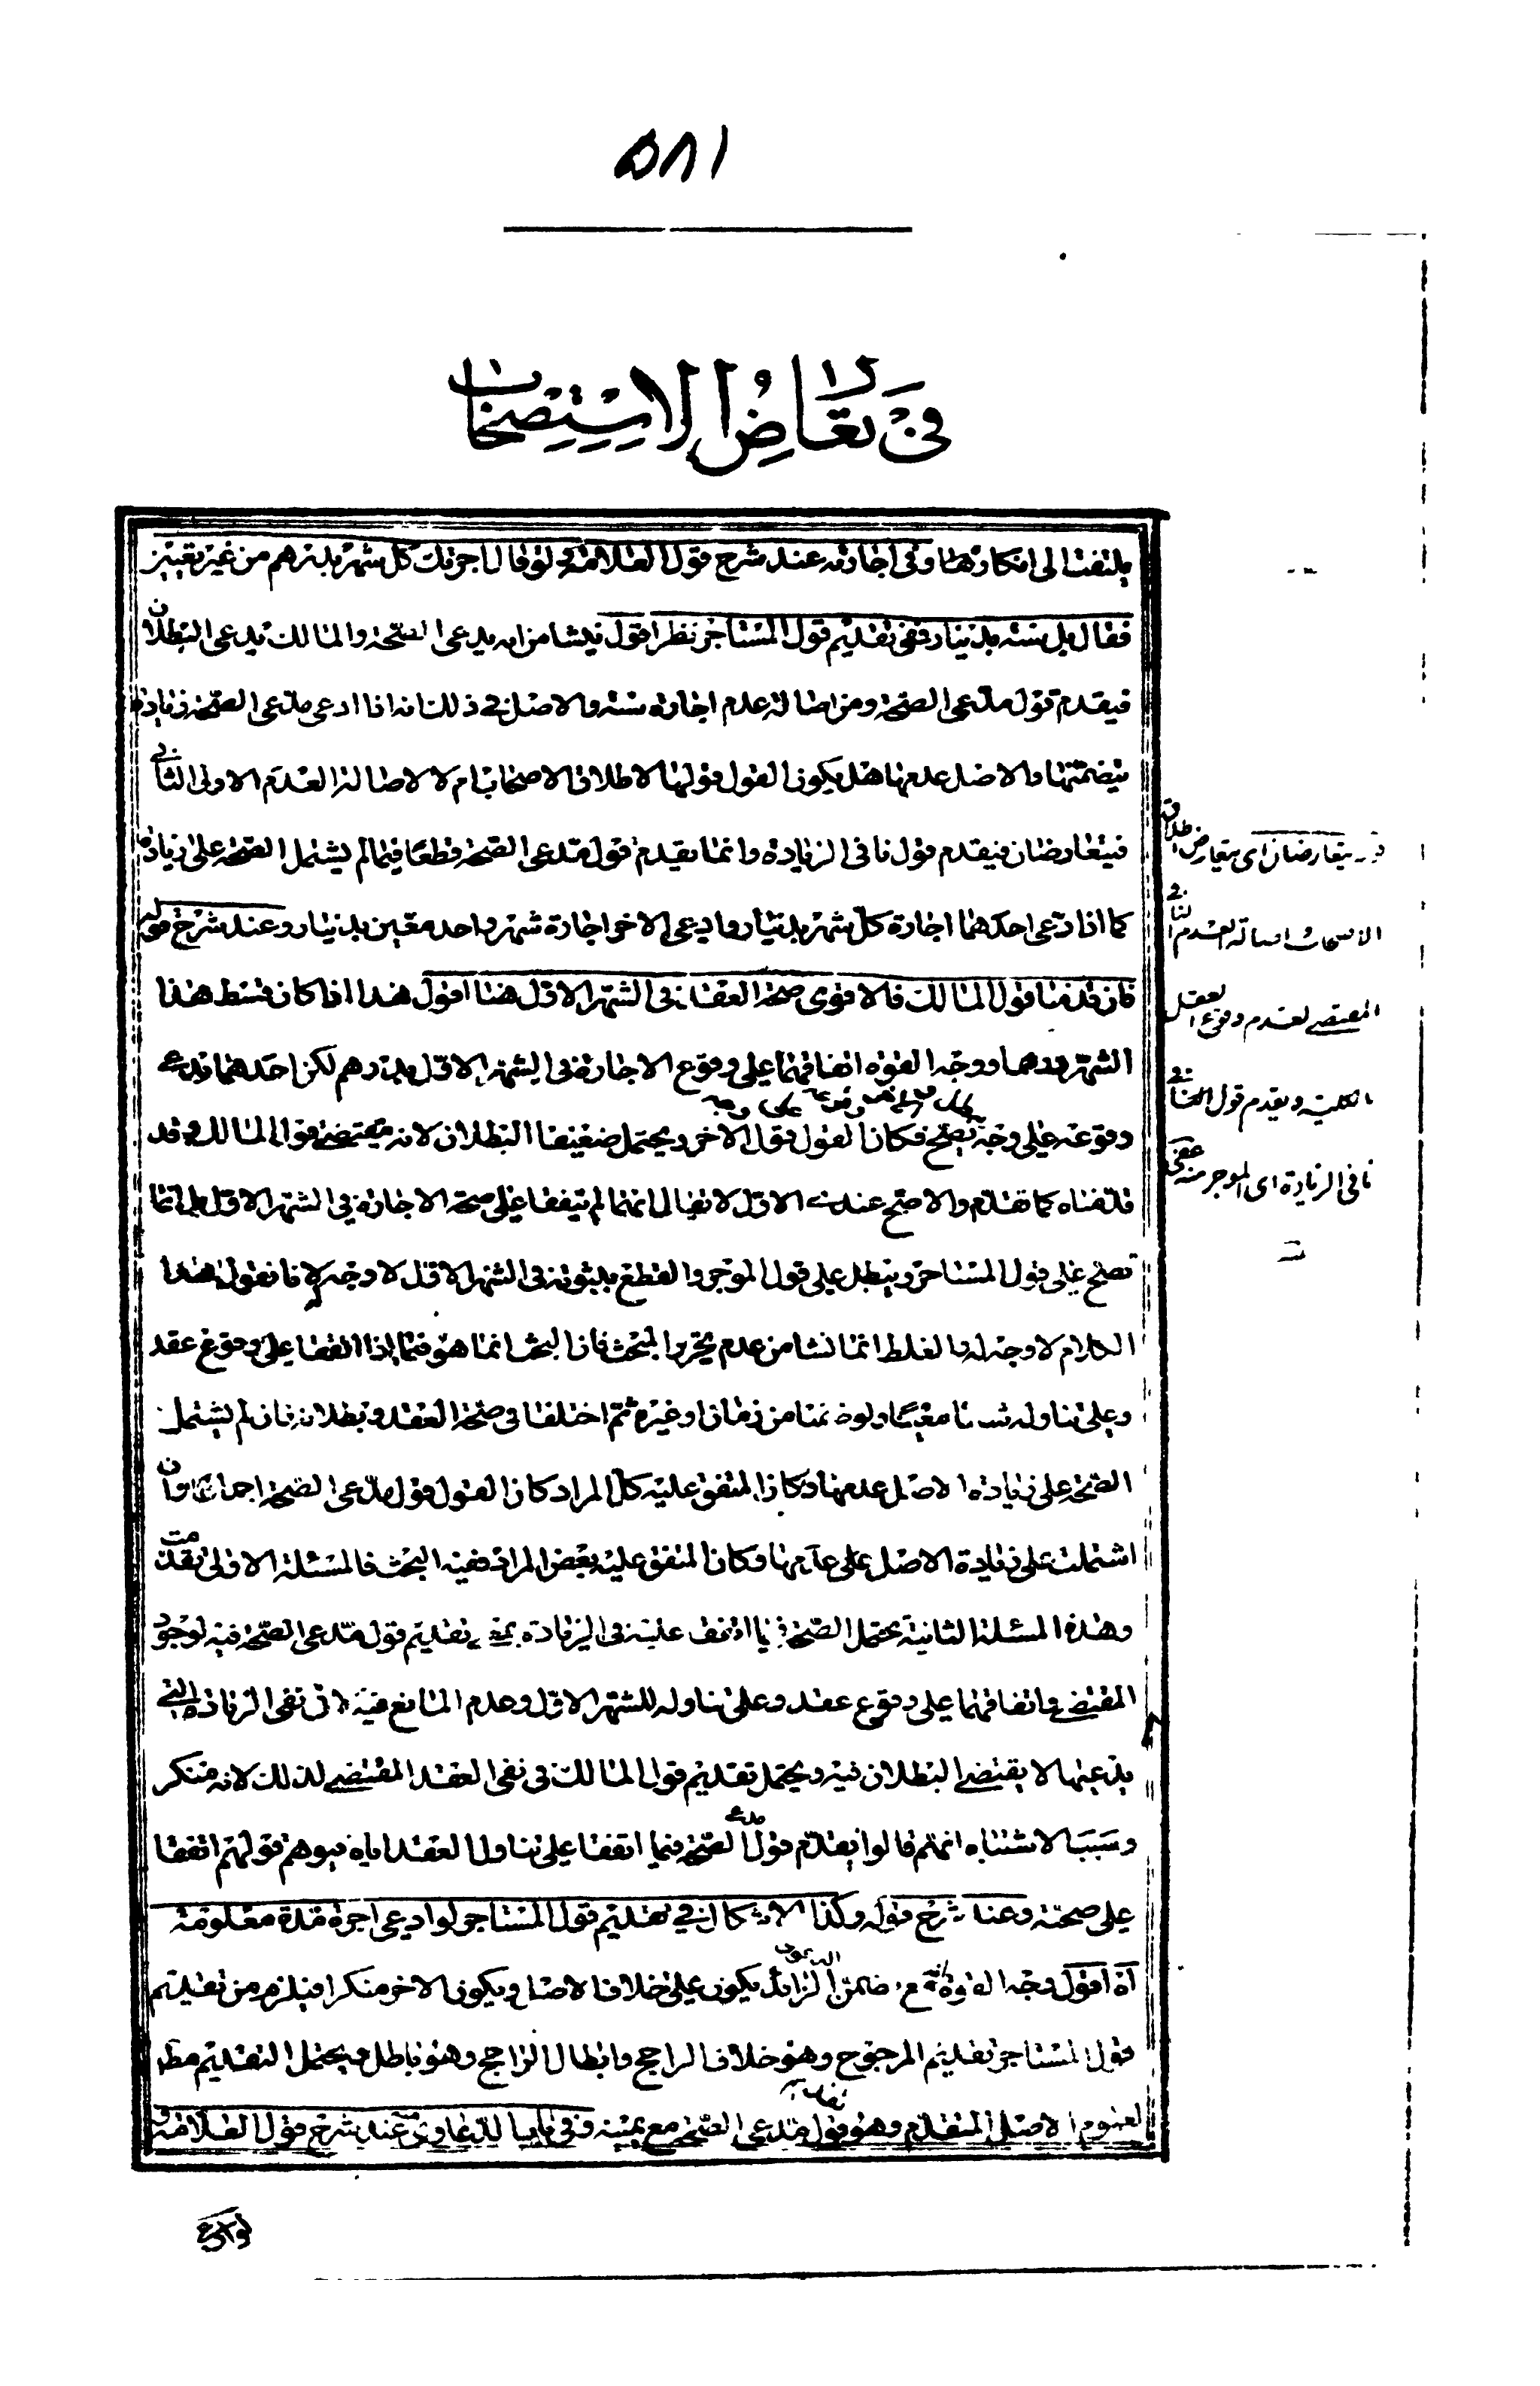 ٥٨١
في تعارض الاستصحاب
يلتفت الى انكارهما وفى اجارته عند شرح قول العلامة ولو قال اجرتك كل شهر بدرهم من غير تعيين
فقال بل سنة بدينار ففى تقديم قول المستاجر نظر اقول ينشا من انه يدعى الصحة والمالك يدعى البطلان
فيقدم قول مدعى الصحة ومن اصالة عدم اجارة سنة والاصل فى ذلك انه اذا ادعى مدعى الصحة زيادة
يتضمنها والاصل عدمها هل يكون القول قولها لاطلاق الاصحاب ام لا لاصالة العدم الاولى الثانى
فيتعارضان فيقدم قول نافى الزيادة وانما يقدم قول مدعى الصحة قطعا فيما لم يشتمل الصحة على زيادة
كما اذا ادعى احدهما اجارة كل شهر بدينار وادعى الاخر اجارة شهر واحد معين بدينار وعند شرح قوله
فان قدمنا قول المالك فالاقوى صحة العقد فى الشهر الاول هنا اقول هذا اذا كان قسط هذا
الشهر درهما ووجه القوة اتفاقهما على وقوع الاجارة فى الشهر الاول بدرهم لكن احدهما يدعى
وقوعه على وجه يصح فكان القول قول الاخر ويحتمل ضعيفا البطلان لانه مقتضى قول المالك وقد
قدمناه كما تقدم والاصح عندى الاول لا يقال انهما لم يتفقا على صحة الاجارة فى الشهر الاول بل انما
تصح على قول المستاجر ويبطل على قول الموجر والقطع بثبوته فى الشهر الاول لا وجه له لانا نقول هذا
الكلام لا وجه له والغلط انما نشا من عدم تحرير المبحث فان البحث انما هو فيما اذا اتفقا على وقوع عقد
وعلى تناوله شيئا معينا ولو ضمنا من زمان او غيره ثم اختلفا فى صحة العقد وبطلانه فان لم يشتمل
الصحة على زيادة الاصل عدمها وكان المتفق عليه كل المراد كان القول قول مدعى الصحة اجماعا وان
اشتملت على زيادة الاصل على عدمها وكان المتفق عليه بعض المراد ففيه البحث فالمسئلة الاولى تقدمت
وهذه المسئلة الثانية يحتمل الصحة فيما اتفقا عليه فى الزيادة بمعنى تقديم قول مدعى الصحة فيه لوجود
المقتضى واتفاقهما على وقوع عقد وعلى تناوله للشهر الاول وعدم المانع فيه اذ نفى الزيادة التى
يدعيها لا يقتضى البطلان فيه ويحتمل تقديم قول المالك فى نفى العقد المقتضى لذلك لانه منكر
وسبب الاشتباه انهم قالوا يقدم قول مدعى الصحة فيما اتفقا على تناول العقد اياه فيوهم قولهم اتفقا
على صحته وعند شرح قوله وكذا الاشكال فى تقديم قول المستاجر لو ادعى اجرة مدة معلومة
آه اقول وجه القوة انه مع تضمن الدعوى الزائد يكون على خلاف الاصل ويكون الاخر منكرا فيلزم من تقديم
قول المستاجر تقديم المرجوح وهو خلاف الراجح وابطال الراجح وهو باطل ويحتمل التقديم مطلقا
لعموم الاصل المتقدم وهو تقديم قول مدعى الصحة مع يمينه وفى باب الدعاوى عند شرح قول العلامة و
قوله يتعارضان اى يتعارض اطلاق
الاصحاب اصالة العدم الثانى
المقتضى لعدم وقوع العقد
بالكلية ويقدم قول الثانى
نافى الزيادة اى الموجر منه عفى